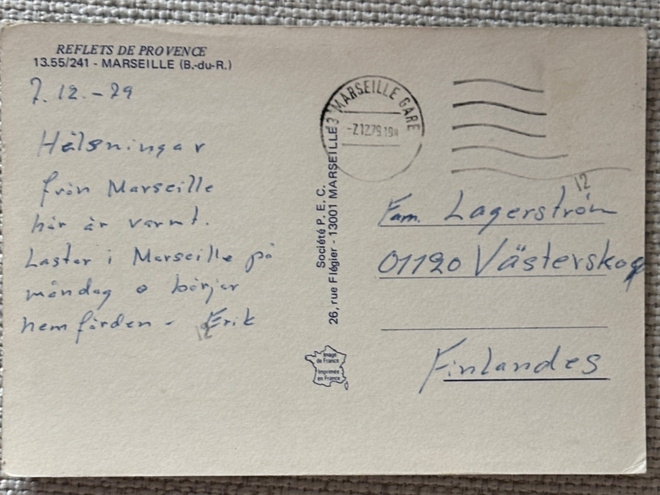 REFLETS DE PROVENCE
13.55/241 - MARSEILLE (B.-du-R.)
7.12.-79
Hälsningar
från Marseille
här är varmt.
Lastar i Marseille på
måndag o börjar
hemfärden - Erik
12
Société P.E.C.
26, rue Flégier - 13001 MARSEILLE
Image
de France
Imprimée
en France
13 MARSEILLE GARE
-7.12.79.19H
12
Fam. Lagerström
01120 Västerskog
Finlandes